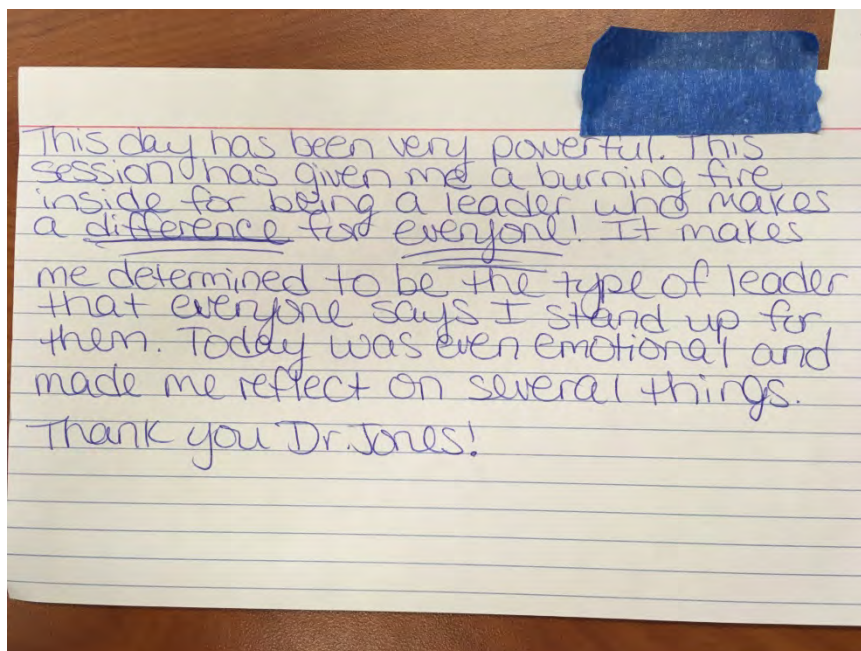 This day has been very powerful. This
session has given me a burning fire
inside for being a leader who makes
a difference for everyone! It makes
me determined to be the type of leader
that everyone says I stand up for
them. Today was even emotional and
made me reflect on several things.
Thank you Dr. Jones!